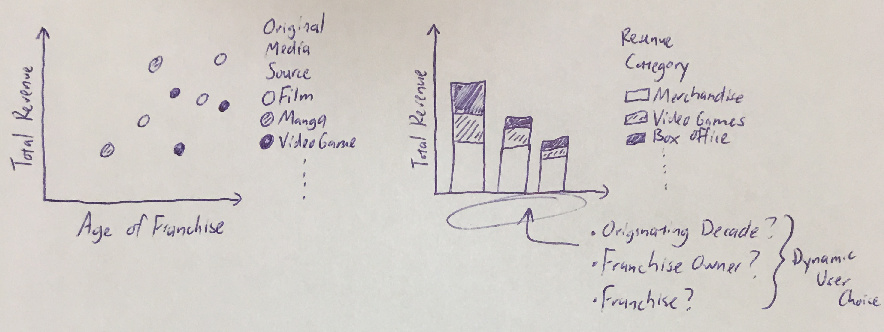 Total Revenue
Age of Franchise
Original
Media
Source
Film
Manga
Video Game
Total Revenue
Revenue
Category
Merchandise
Video Games
Box Office
• Originating Decade?
• Franchise Owner?
• Franchise?
Dynamic
User
Choice